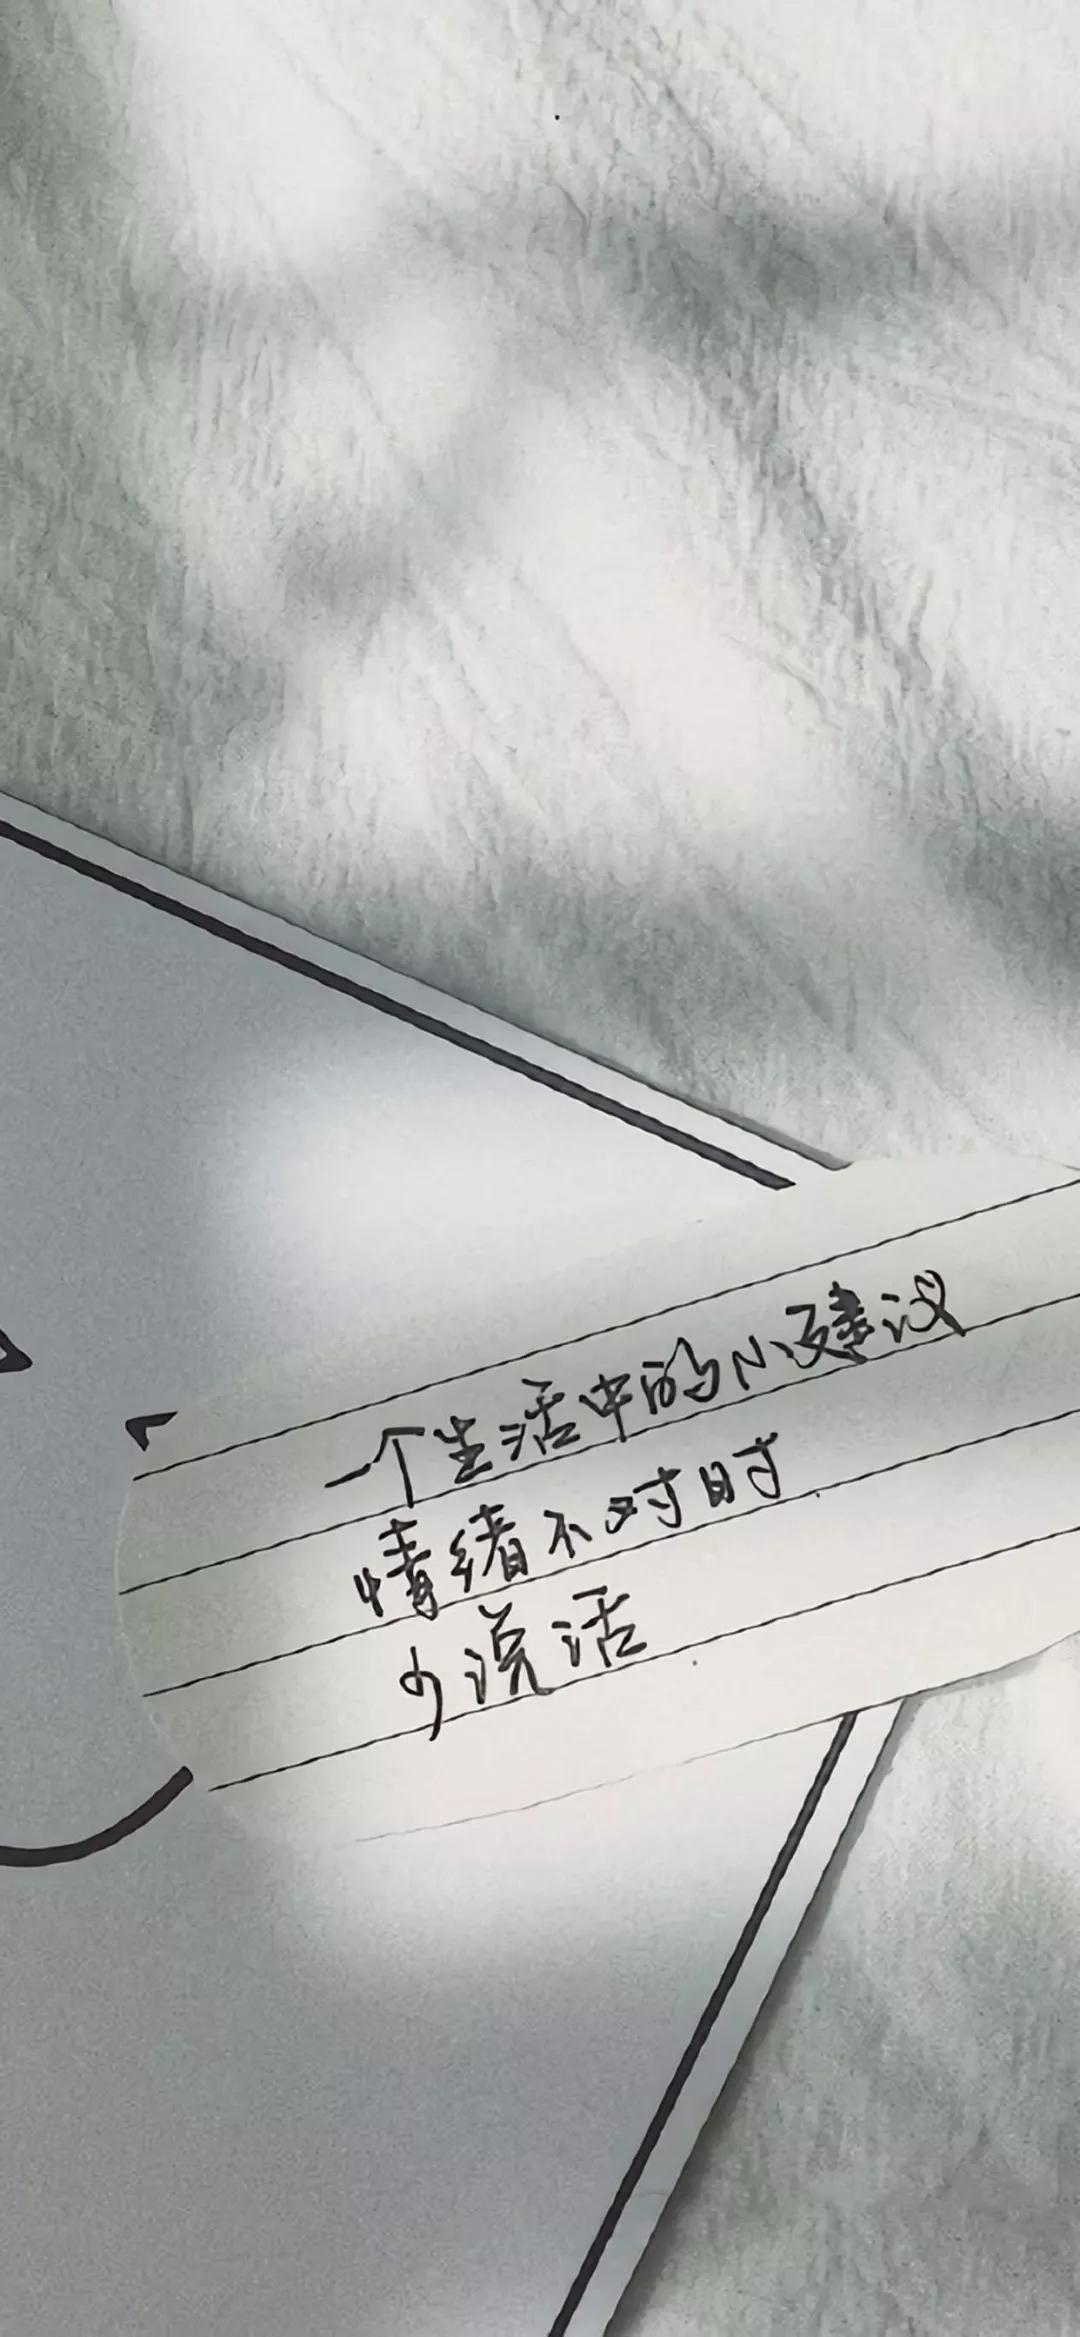 一个生活中的小建议
情绪不对时
少说话